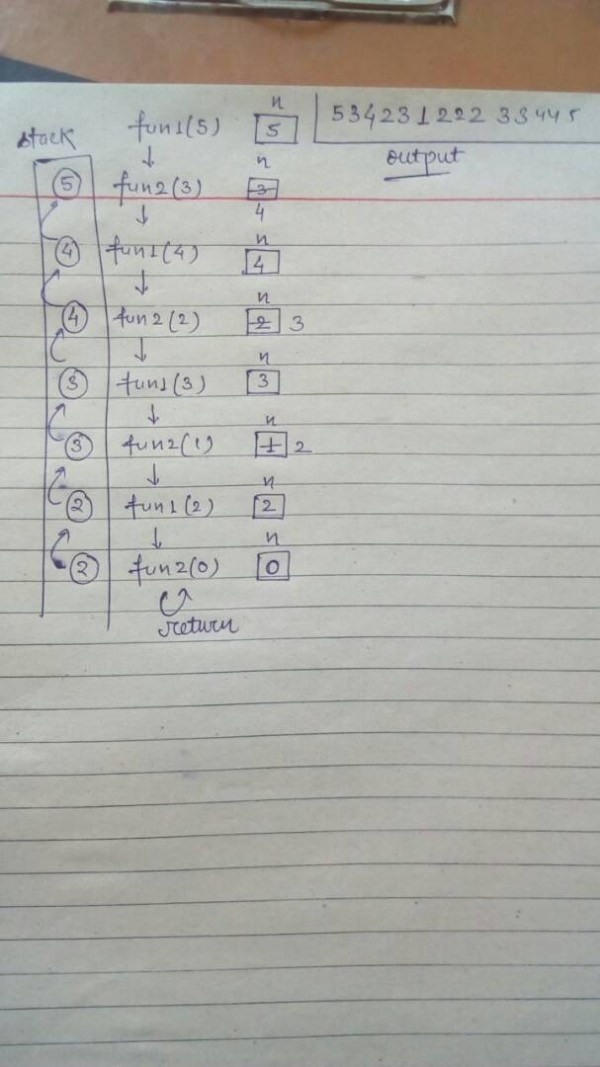 n
stack fun1(5) 5 534231222 33445
n output
5 fun2(3) 3
4
n
4 fun1(4) 4
n
4 fun2(2) 2 3
n
3 fun1(3) 3
n
3 fun2(1) 1 2
n
2 fun1(2) 2
n
2 fun2(0) 0
return